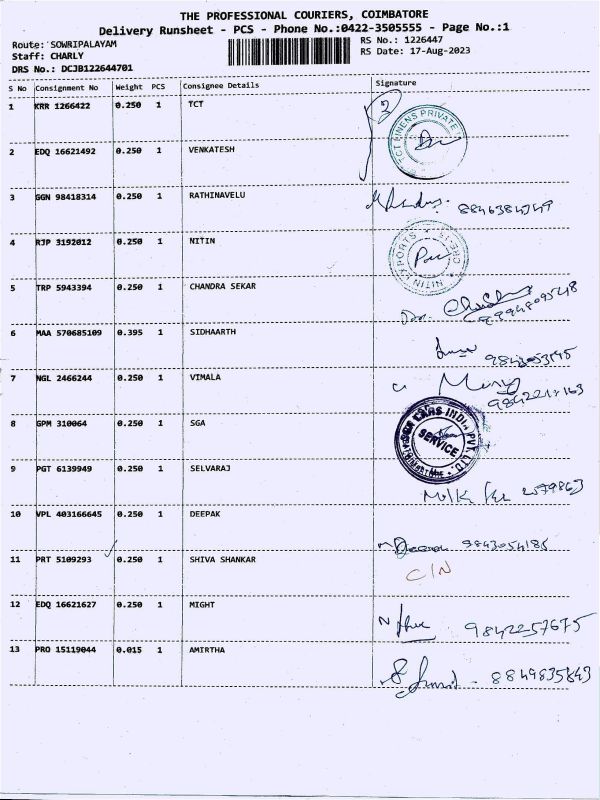 THE PROFESSIONAL COURIERS, COIMBATORE
Delivery Runsheet - PCS - Phone No.:0422-3505555 - Page No.:1
Route: SOWRIPALAYAM RS No.: 1226447
Staff: CHARLY RS Date: 17-Aug-2023
DRS No.: DCJB122644701
S No Consignment No Weight PCS Consignee Details Signature
1 KRR 1266422 0.250 1 TCT
TCT LINENS PRIVATE
2 EDQ 16621492 0.250 1 VENKATESH
3 GGN 98418314 0.250 1 RATHINAVELU
4 RJP 3192012 0.250 1 NITIN
NITIN EXPORTS
5 TRP 5943394 0.250 1 CHANDRA SEKAR
6 MAA 570685109 0.395 1 SIDHAARTH
7 NGL 2466244 0.250 1 VIMALA
8 GPM 310064 0.250 1 SGA
CARS INDIA PVT. LTD.
SERVICE
9 PGT 6139949 0.250 1 SELVARAJ
10 VPL 403166645 0.250 1 DEEPAK
Deepa 9843054185
11 PRT 5109293 0.250 1 SHIVA SHANKAR
C/N
12 EDQ 16621627 0.250 1 MIGHT
9842257675
13 PRO 15119044 0.015 1 AMIRTHA
8849835843